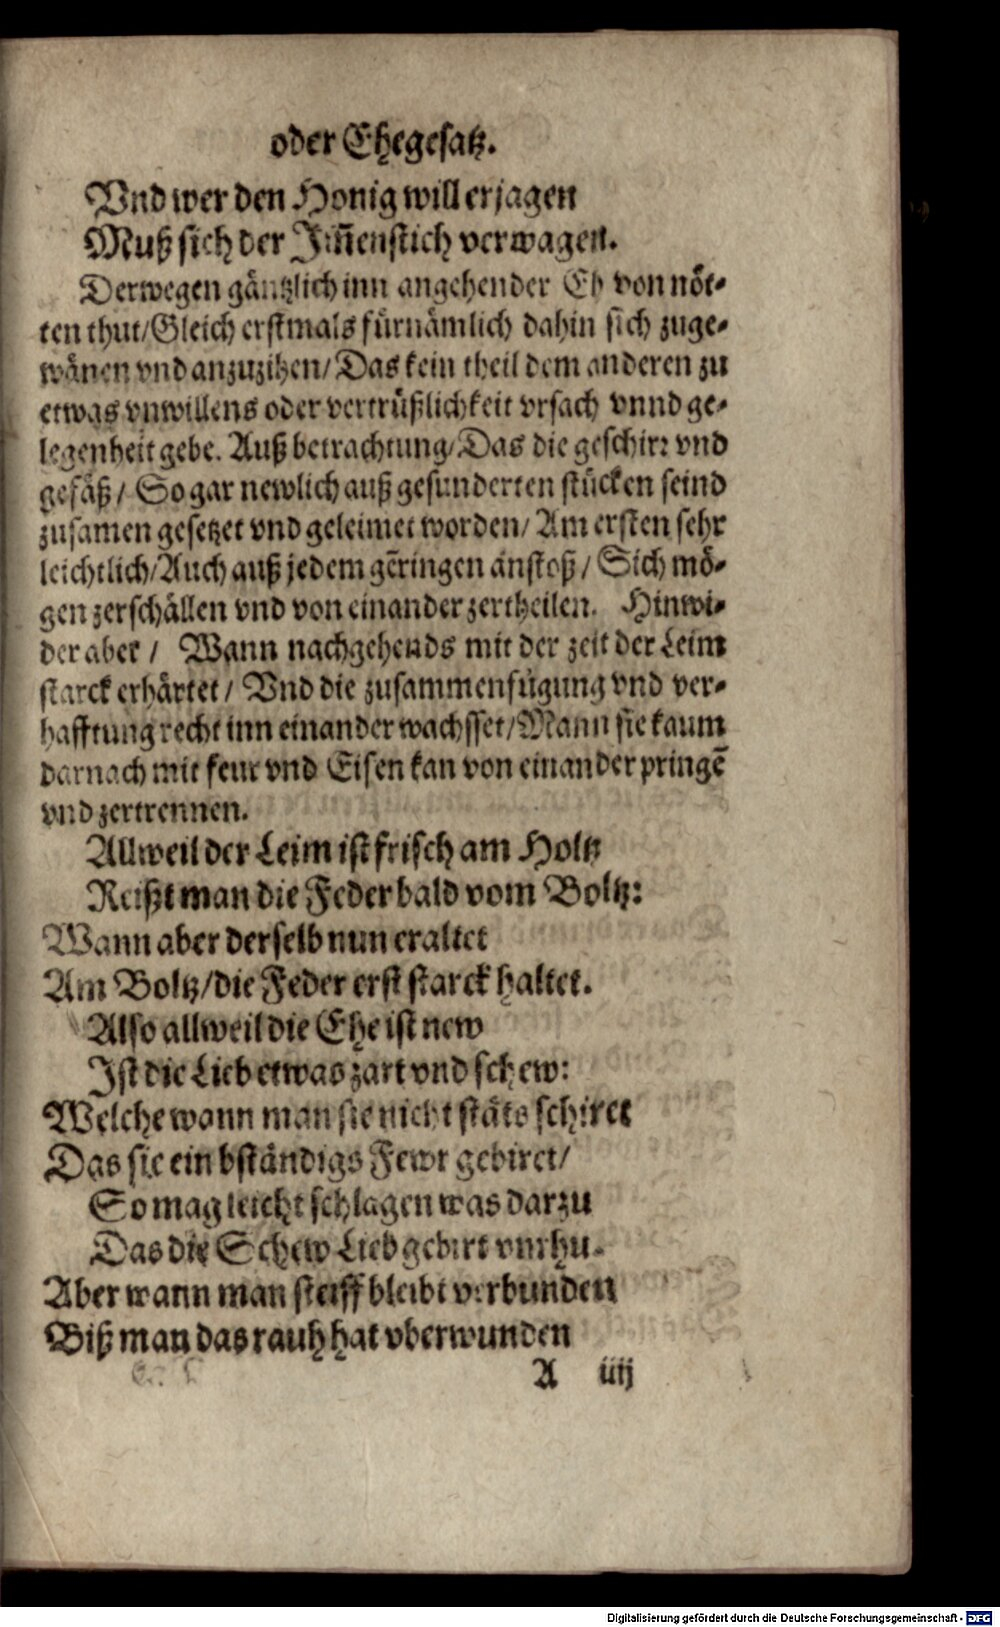 oder Ehegesatz.
Vnd wer den Honig will erjagen
Muß sich der Im̃enstich verwagen.
Derwegen gäntzlich inn angehender Eh von nöt-
ten thut/Gleich erstmals fürnämlich dahin sich zuge-
wänen vnd anzuzihen/Das kein theil dem anderen zu
etwas vnwillens oder vertrüßlichkeit vrsach vnnd ge-
legenheit gebe. Auß betrachtung/Das die geschirr vnd
gefäß/ So gar newlich auß gesunderten stücken seind
zusamen gesetzet vnd geleimet worden/ Am ersten sehr
leichtlich/Auch auß jedem geringen anstoß/ Sich mö-
gen zerschällen vnd von einander zertheilen. Hinwi-
der aber/ Wann nachgehends mit der zeit der Leim
starck erhärtet/ Vnd die zusammenfügung vnd ver-
hafftung recht inn einander wachsset/Mann sie kaum
darnach mit feur vnd Eisen kan von einander pringẽ
vnd zertrennen.
Allweil der Leim ist frisch am Holtz
Reißt man die Feder bald vom Boltz:
Wann aber derselb nun eraltet
Am Boltz/die Feder erst starck haltet.
Also allweil die Ehe ist new
Ist die Lieb etwas zart vnd schew:
Welche wann man sie nicht stäts schiret
Das sie ein bständigs Fewr gebiret/
So mag leicht schlagen was darzu
Das die Schew Lieb gebirt vnrhu.
Aber wann man steiff bleibt verbunden
Biß man das rauh hat vberwunden
A iiij
Digitalisierung gefördert durch die Deutsche Forschungsgemeinschaft - DFG